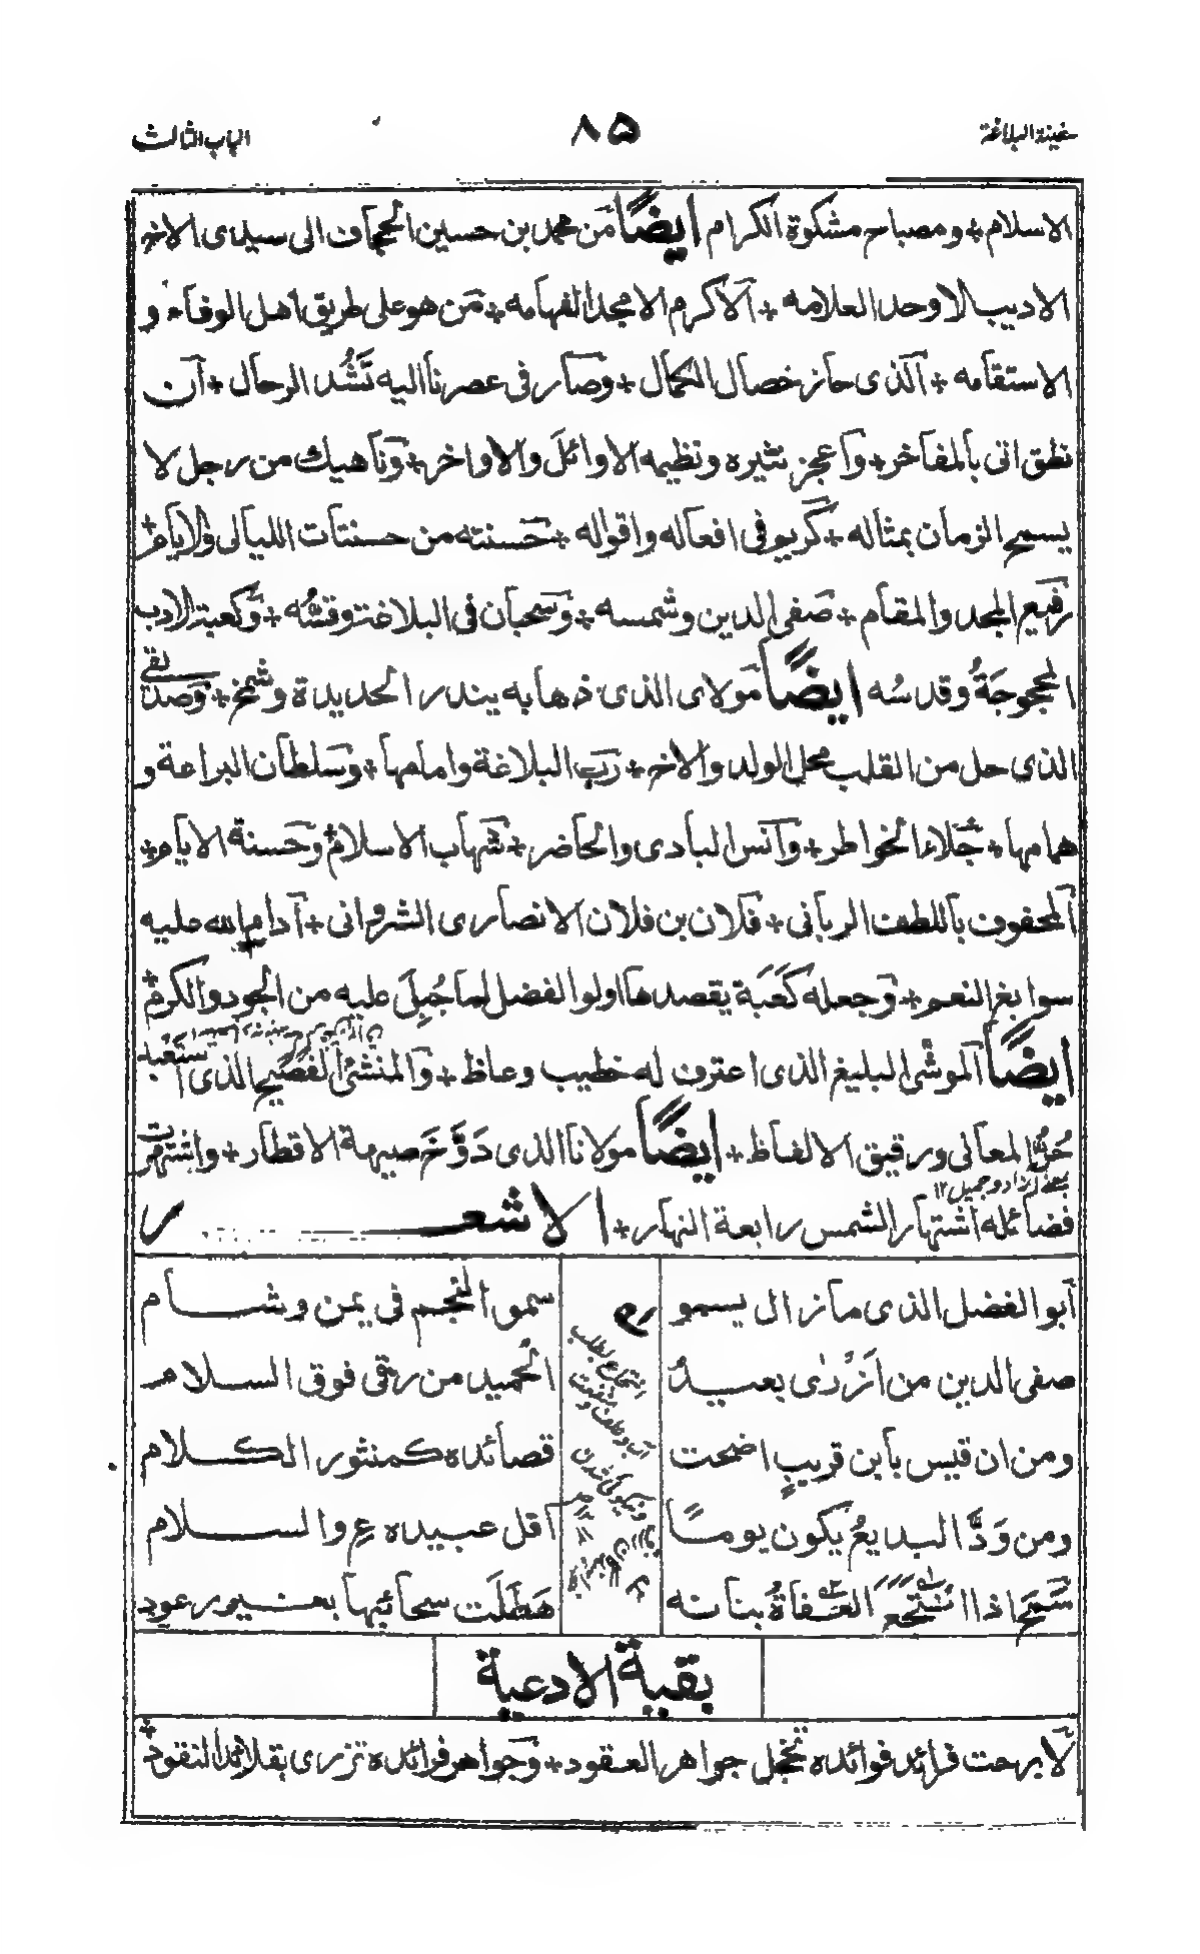 سفينة البلاغة
٨٥
الباب الثالث
الاسلام + ومصباح مشكوة الكرام ايضًا من محمد بن حسين الحجاف الى سيدى الاخ
الاديب الاوحد العلامه + الاكرم الامجد الفهامه + من هو على طريق اهل الوفاء و
الاستقامه + الذى حاز خصال الكمال + وصار فى عصرنا اليه تشد الرحال + ان
نطق اتى بالمفاخر + واعجز نثيره ونظيمه الاوائل والاواخر + وناهيك من رجل لا
يسمح الزمان بمثاله + كريم فى افعاله واقواله + حسنته من حسنات الليالى والايام +
رفيع المجد والمقام + صفى الدين وشمسه + وسحبان فى البلاغة وقسّه + وكعبة الادب
المحجوجةُ وقدسُه ايضًا مولاى الذى ذهابه بندر الحديدة وشمخ + وصديقى
الذى حل من القلب محل الولد والاخ + رب البلاغة وامامها + وسلطان البراعة و
همامها + جلاء الخواطر + وانس البادى والحاضر + شهاب الاسلام + وحسنة الايام +
المحفوف باللطف الربانى + فلان بن فلان الانصارى الشروانى + ادام الله عليه
سوابغ النعم + وجعله كعبة يقصدها اولوا الفضل لما جُبِلَ عليه من الجود والكرم +
ايضًا الموشّى البليغ الذى اعترف له خطيب وعاظ + والمنشئ الفصيح الذى استعبد
حُرّ المعانى ورقيق الالفاظ + ايضًا مولانا الذى دَوَّخَ صيته الاقطار + واشتهرت
فضائله اشتهار الشمس رابعة النهار + الاشعار
ابو الفضل الذى مازال يسمو سمو النجم فى يمن وشام
صفى الدين من ازرى بعبد الحميد من رقى فوق السلام
ومن ان قيس بابن قريبٍ اضحت قصائده كمنثور الكلام
ومن وَدَّ البديعُ يكون يومًا اقل عبيده ع والسلام
سَمِحٌ اذا انتجع العفاةُ بنانه هَطَلَت سحائبها بغير رعود
بقية الادعية
لا برحت فرائد فوائده تخجل جواهر العقود + وجواهر فرائده تزرى بقلائد النقود +